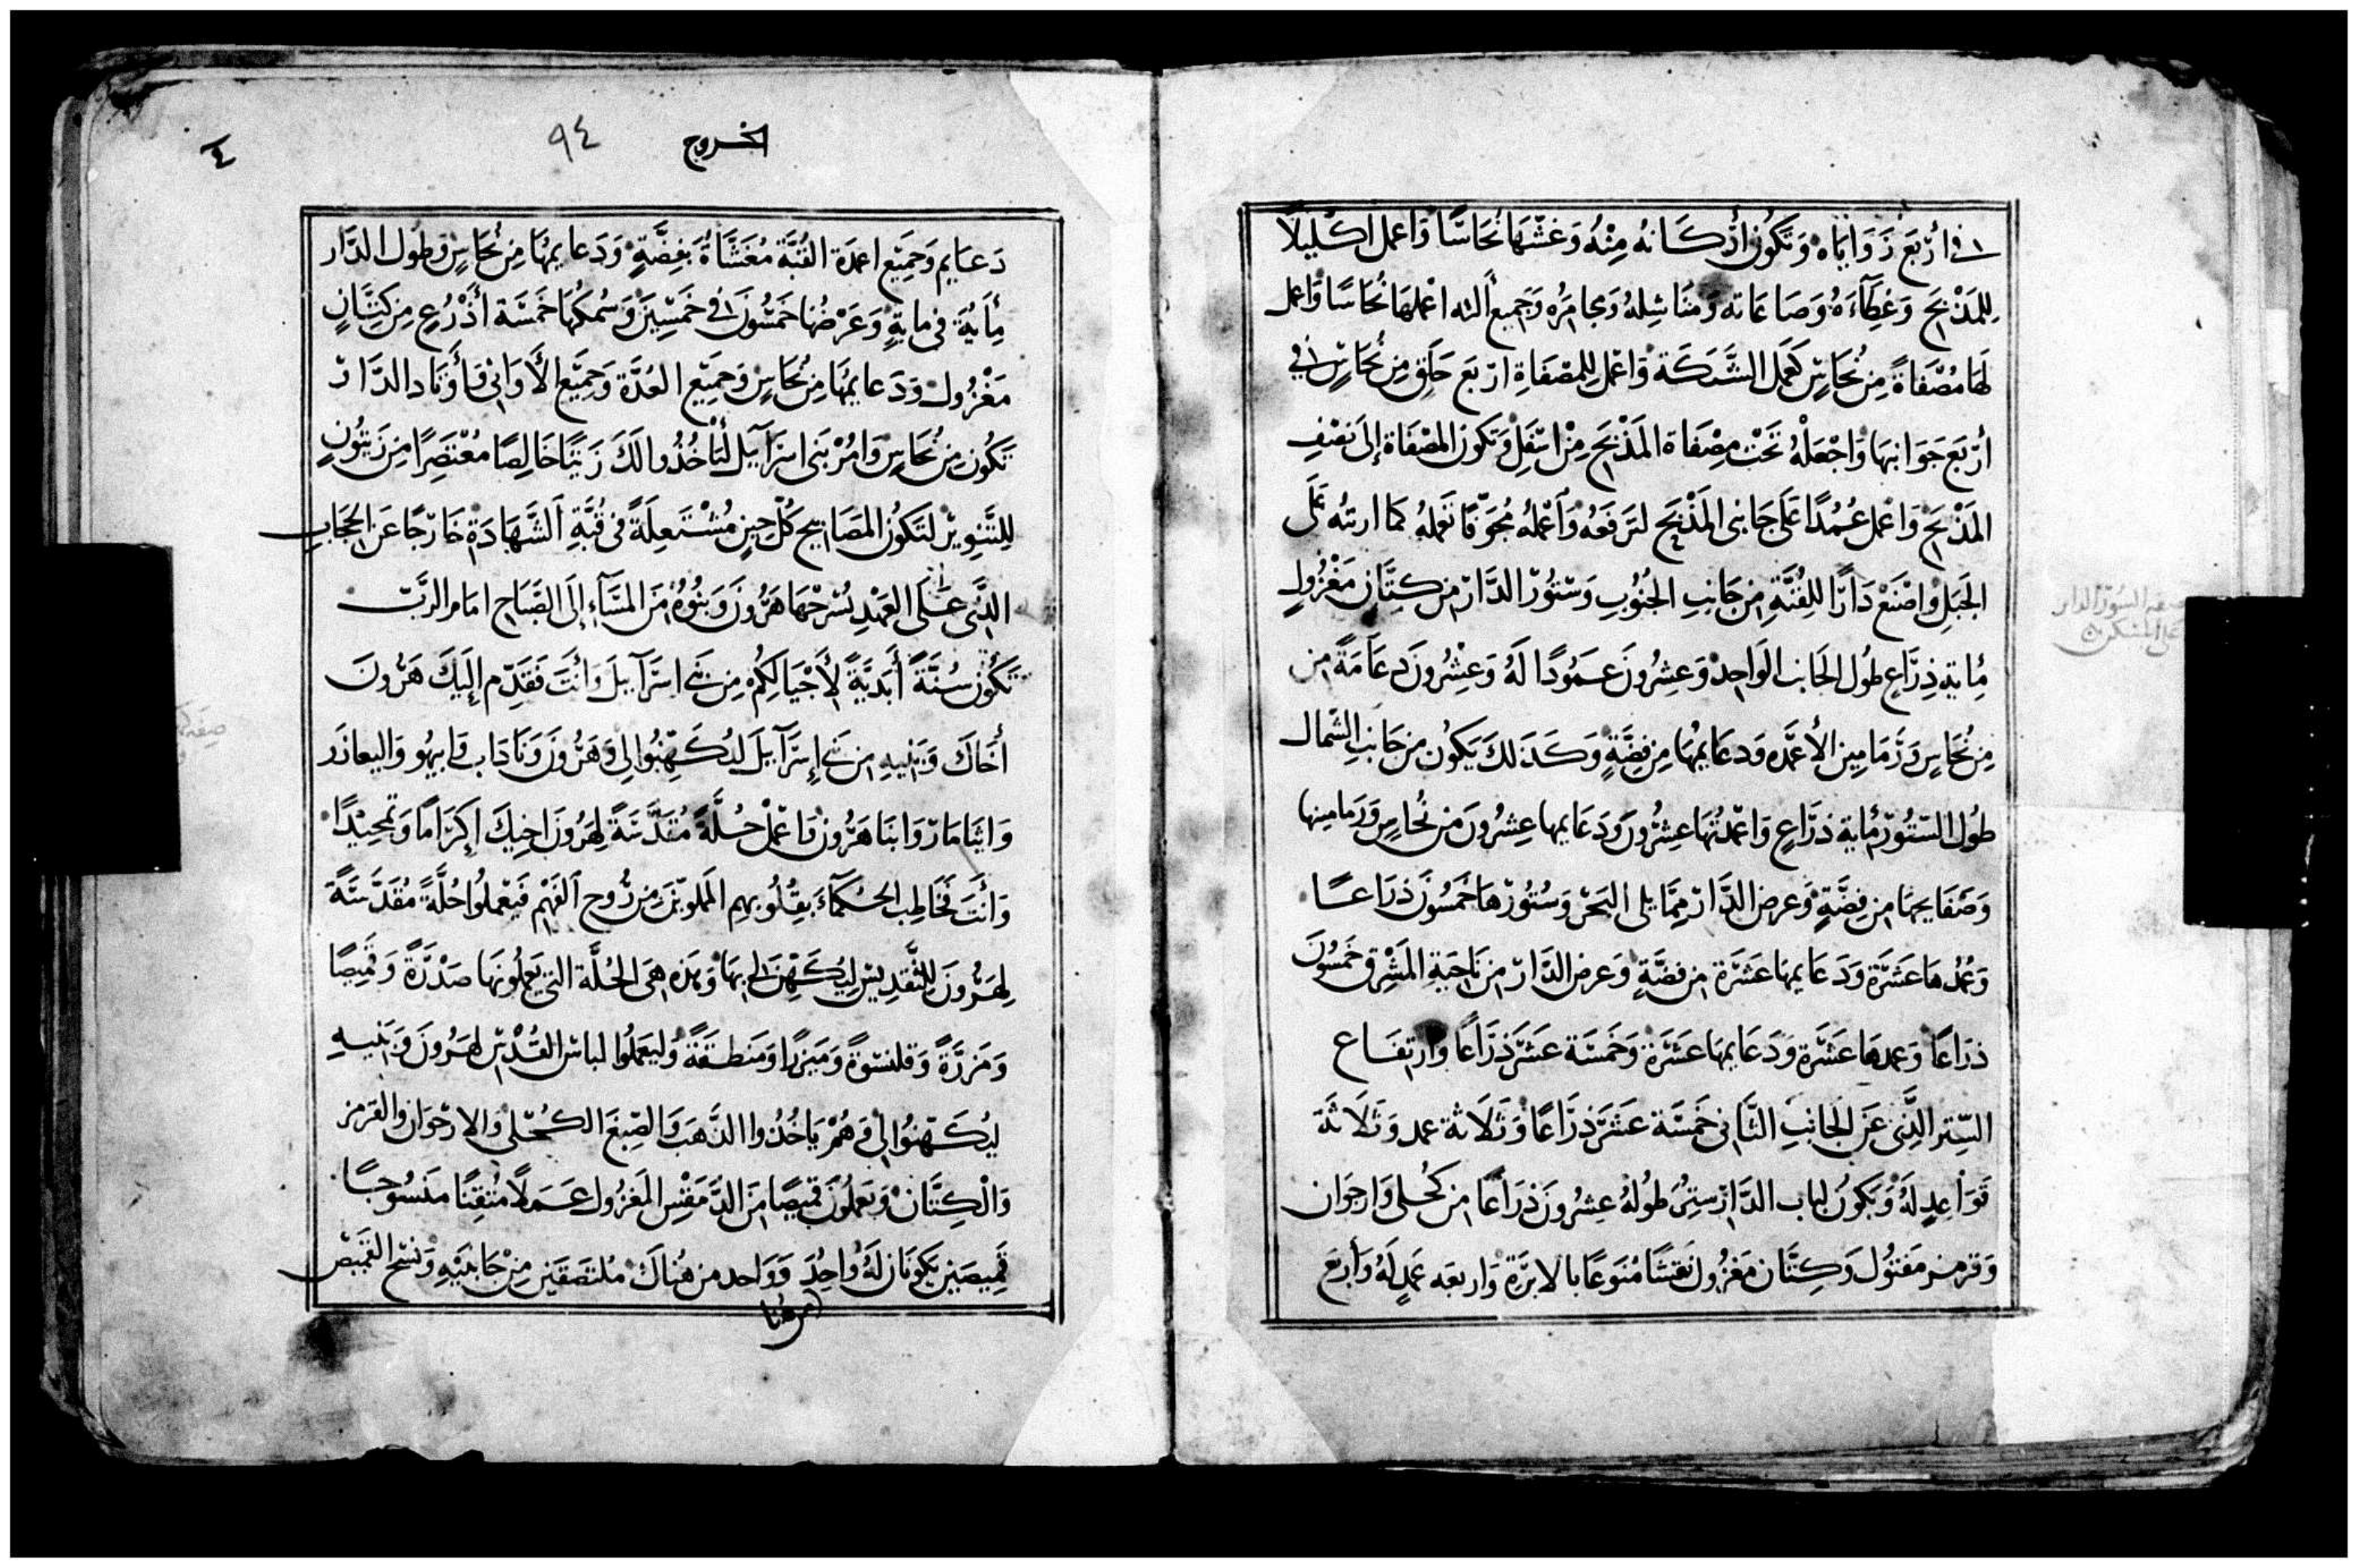 في اربع زواياه وتكون أركانه منه وغشها نحاسًا واعمل اكليلًا
للمذبح وغطآءه وصاعاته ومناشله ومجامره وجميع ألته اعملها نحاسًا واعمل
لها مصفاةً من نحاسٍ كعمل الشبكة واعمل للمصفاة اربع حلق من نحاسٍ في
أربع جوانبها واجعله تحت مصفاة المذبح من اسفل وتكون المصفاة إلى نصف
المذبح واعمل عُمُدًا على جانبى المذبح لترفعه وأعمله مجوّفًا تعمله كما اريته على
الجبل واصنع دارًا للقبّة من جانب الجنوب وستور الدّار من كتّان مغزولٍ
مِاية ذِرَاعٍ طول الجانب الواحد وعشرون عمودًا لهُ وعشرون دعامةً من
من نحاسٍ وزمامين الأعمده ودعايمها من فضّةٍ وكذلك يكون من جانب الشمال
طول الستور ماية ذراعٍ واعمدتها عشرون ودعايمها عشرون من نحاسٍ وزمامينها
وصفايحها من فضّةٍ وعرض الدّار ممّا يلى البحر وستورها خمسون ذراعًا
وعُمُدها عشرة ودعايمها عشرة من فضّةٍ وعرض الدّار من ناحية المشرق خمسون
ذراعًا وعمدها عشرة ودعايمها عشرة وخمسة عشر ذراعًا وارتفاع
السّتر الّذى عن الجانب الثّانى خمسة عشر ذراعًا وثلاثة عمد وثلاثة
قواعدٍ لهُ ويكون لباب الدّار ستر طوله عشرون ذراعًا من كحلى وارجوان
وقرمز مفتول وكتّان مغزول نقشًا منوعًا بالابرة واربعه عمدٍ لهُ وأربع
صفه السور الدار
الخروج
٩٤
٤
دعايم وجميع اعمدة القبّة مغشاةً بفضّةٍ ودعايمها من نحاسٍ وطول الدّار
مأية في مايةٍ وعرضها خمسون في خمسين وسمكها خمسة أذرُعٍ من كتّانٍ
مغزول ودعايمها من نحاسٍ وجميع العُدّة وجميع الأوانى وأوتاد الدّار
تكون من نحاسٍ وامُر بنى اسرآيل لتأخذوا لك زيتًا خالصًا معتصرًا من زيتونٍ
للتّنوير لتكون المصابيح كلّ حينٍ مُشتعلةً في قبّة الشهادة خارجًا عن الحجاب
الذّى على العهد يُسرجها هرون وبنوهُ من المسَآء إلى الصّباح امام الربّ
تكون سُنّةً أبديّةً لأجيالكم من بنى اسرآيل وأنت فقدّم إليك هرون
أخاك وبنيه من بنى إسرآيل ليُكهّنوا لى وهرون وناداب وابيهو واليعازر
وايثامار وابنا هرون واعمل حُلّةً مُقدّسةً لهرون اخيك إكرامًا وتمجيدًا
وأنت فخاطب الحُكمآء بقلوبهم المملوّين من روح الفهم فيعملوا حُلّةً مُقدّسةً
لهرون للتّقديس ليُكهّن لى بها وهذه هى الحُلّة التى يعملونها صدرةً وقميصًا
ومزرّةً وقلنسوةً وميزرًا ومنطقةً وليعملوا لباس القُدس لهرون وبنيه
ليُكهّنوا لى وهُم ياخُذوا الذّهب والصّبغ الكُحلى والارجوان والقرمز
والكتّان ويعملون قميصًا من الدّمقس المغزول عملًا مُتقنًا منسوجًا
قميصين يكونان لهُ واحُد وواحد من هُناك ملتصقين من جانبيه ونسج القميص